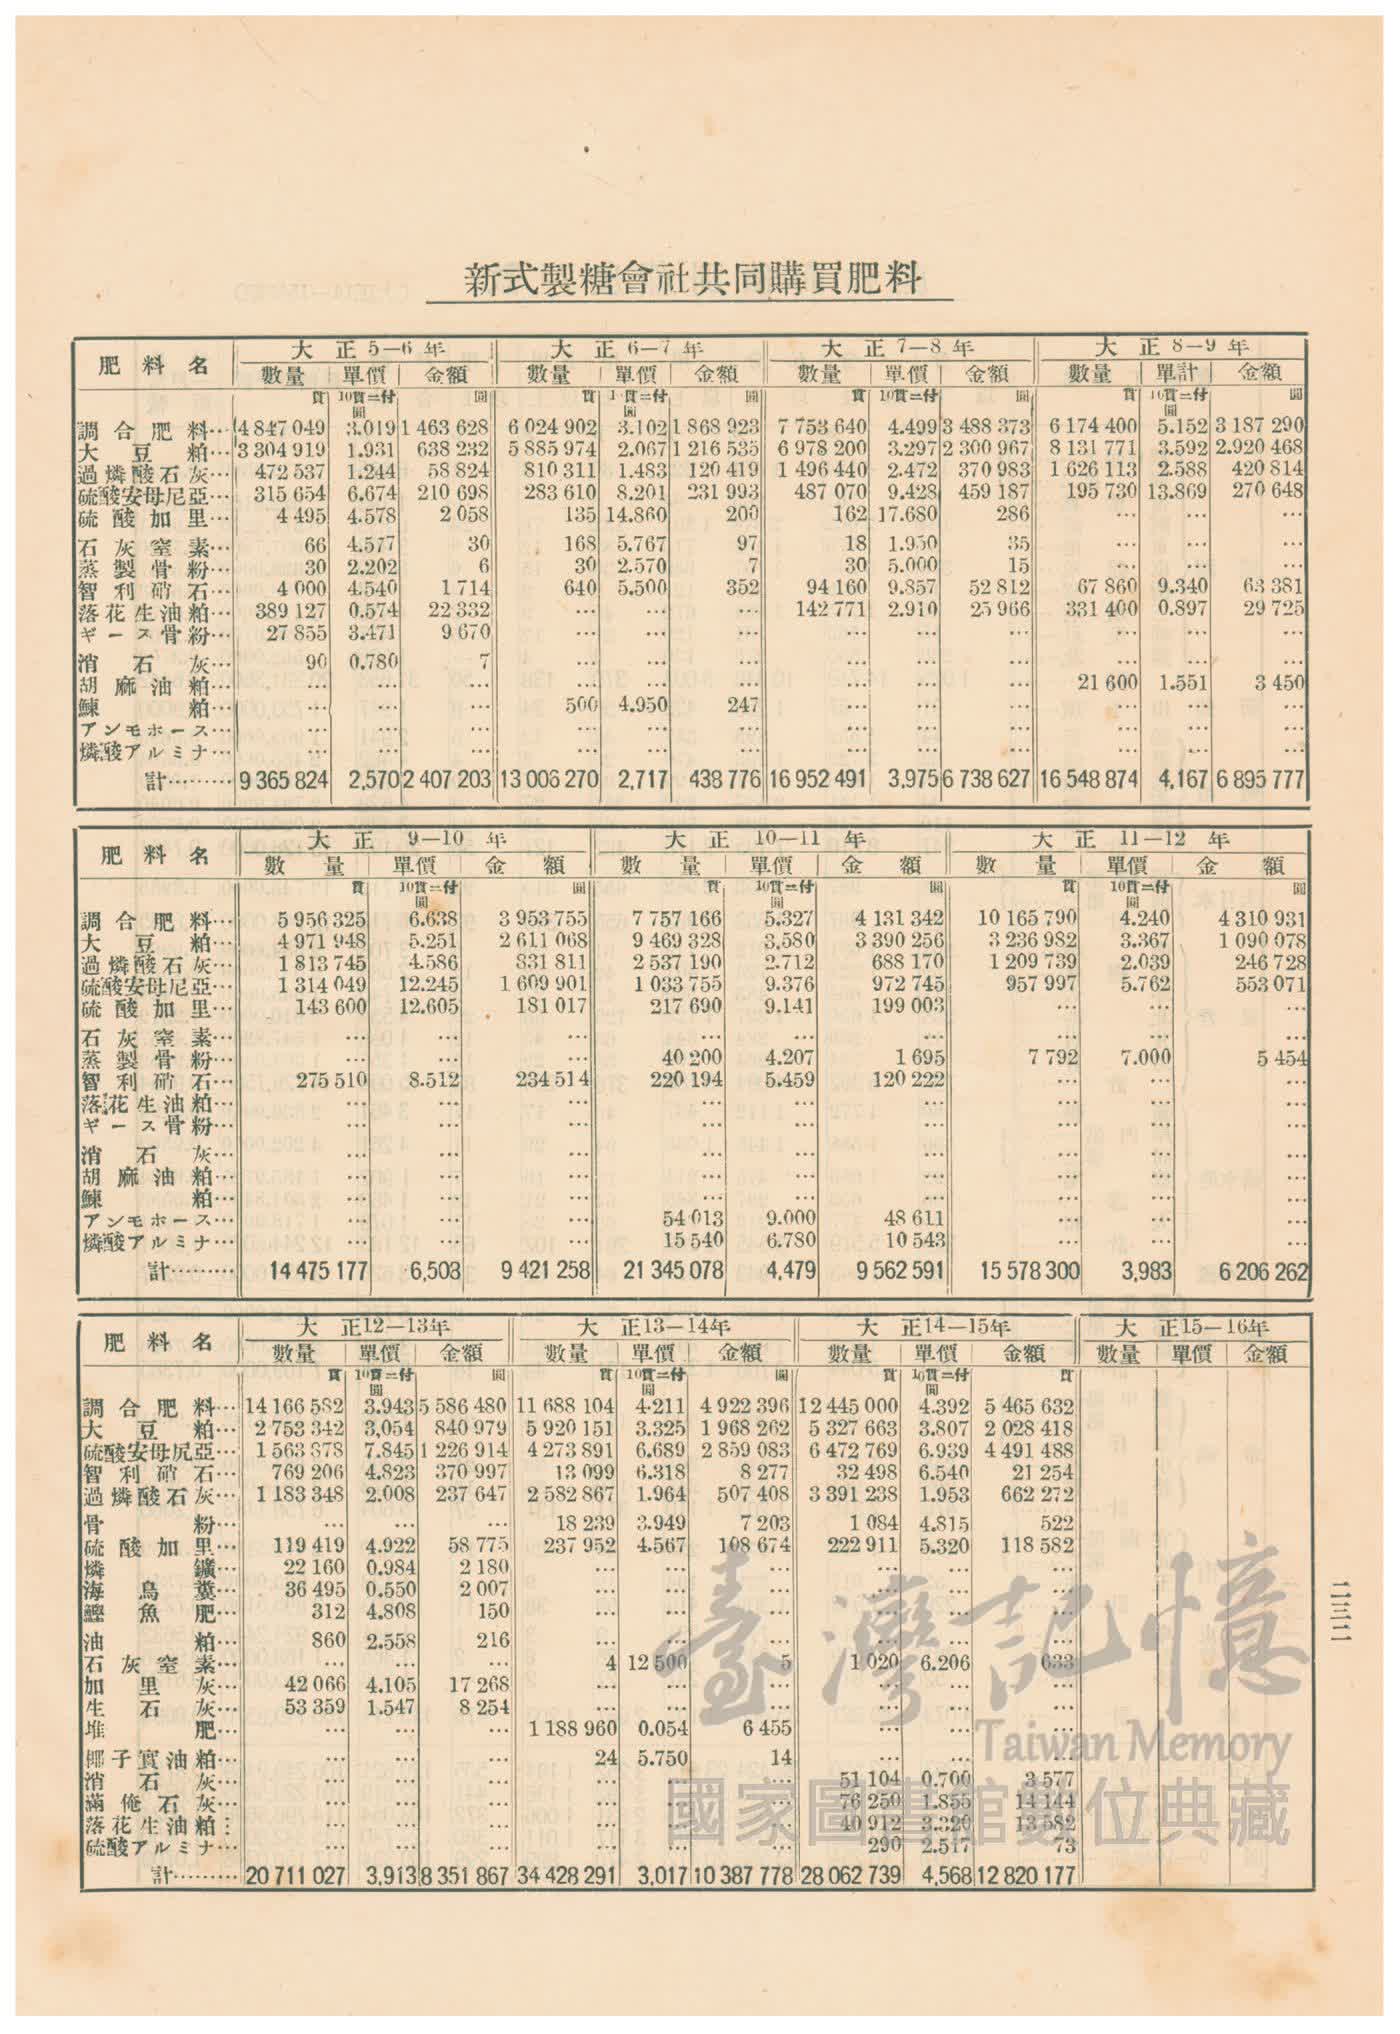 新式製糖會社共同購買肥料
肥料名 大正5—6年 大正6—7年 大正7—8年 大正8—9年
數量 單價 金額 數量 單價 金額 數量 單價 金額 數量 單計 金額
貫 10貫ニ付圓 圓 貫 圓 圓 貫 10貫ニ付圓 圓 貫 10貫ニ付圓 圓
調合肥料… 4 847 049 3.019 1 463 628 6 024 902 3.102 1 868 923 7 753 640 4.499 3 488 373 6 174 400 5.152 3 187 290
大豆粕… 3 304 919 1.931 638 232 5 885 974 2.067 1 216 535 6 978 200 3.297 2 300 967 8 131 771 3.592 2.920 468
過燐酸石灰… 472 537 1.244 58 824 810 311 1.483 120 419 1 496 440 2.472 370 983 1 626 113 2.588 420 814
硫酸安母尼亞… 315 654 6.674 210 698 283 610 8.201 231 993 487 070 9.428 459 187 195 730 13.869 270 648
硫酸加里… 4 495 4.578 2 058 135 14.860 200 162 17.680 286 … … …
石灰窒素… 66 4.577 30 168 5.767 97 18 1.950 35 … … …
蒸製骨粉… 30 2.202 6 30 2.570 7 30 5.000 15 … … …
智利硝石… 4 000 4.540 1 714 640 5.500 352 94 160 9.857 52 812 67 860 9.340 63 381
落花生油粕… 389 127 0.574 22 332 … … … 142 771 2.910 25 966 331 400 0.897 29 725
ギース骨粉… 27 855 3.471 9 670 … … … … … … … … …
消石灰… 90 0.780 7 … … … … … … … … …
胡麻油粕… … … … … … … … … … 21 600 1.551 3 450
鰊粕… … … … 500 4.950 247 … … … … … …
アンモホース… … … … … … … … … … … … …
燐酸アルミナ… … … … … … … … … … … … …
計……… 9 365 824 2,570 2 407 203 13 006 270 2,717 438 776 16 952 491 3,975 6 738 627 16 548 874 4,167 6 895 777
肥料名 大正9—10年 大正10—11年 大正11—12年
數量 單價 金額 數量 單價 金額 數量 單價 金額
貫 10貫ニ付圓 圓 貫 10貫ニ付圓 圓 貫 10貫ニ付圓 圓
調合肥料… 5 956 325 6.638 3 953 755 7 757 166 5.327 4 131 342 10 165 790 4.240 4 310 931
大豆粕… 4 971 948 5.251 2 611 068 9 469 328 3,580 3 390 256 3 236 982 3.367 1 090 078
過燐酸石灰… 1 813 745 4.586 831 811 2 537 190 2.712 688 170 1 209 739 2.039 246 728
硫酸安母尼亞… 1 314 049 12.245 1 609 901 1 033 755 9.376 972 745 957 997 5.762 553 071
硫酸加里… 143 600 12.605 181 017 217 690 9.141 199 003 … … …
石灰窒素… … … … … … … … … …
蒸製骨粉… … … … 40 200 4.207 1 695 7 792 7.000 5 454
智利硝石… 275 510 8.512 234 514 220 194 5.459 120 222 … … …
落花生油粕… … … … … … … … … …
ギース骨粉… … … … … … … … … …
消石灰… … … … … … … … … …
胡麻油粕… … … … … … … … … …
鰊粕… … … … … … … … … …
アンモホース… … … … 54 013 9.000 48 611 … … …
燐酸アルミナ… … … … 15 540 6.780 10 543 … … …
計……… 14 475 177 6,503 9 421 258 21 345 078 4,479 9 562 591 15 578 300 3,983 6 206 262
肥料名 大正12—13年 大正13—14年 大正14—15年 大正15—16年
數量 單價 金額 數量 單價 金額 數量 單價 金額 數量 單價 金額
貫 10貫ニ付圓 圓 貫 10貫ニ付圓 圓 貫 10貫ニ付圓 貫
調合肥料… 14 166 582 3.943 5 586 480 11 688 104 4.211 4 922 396 12 445 000 4.392 5 465 632
大豆粕… 2 753 342 3,054 840 979 5 920 151 3.325 1 968 262 5 327 663 3.807 2 028 418
硫酸安母尼亞… 1 563 878 7.845 1 226 914 4 273 891 6.689 2 859 083 6 472 769 6.939 4 491 488
智利硝石… 769 206 4.823 370 997 13 099 6.318 8 277 32 498 6.540 21 254
過燐酸石灰… 1 183 348 2.008 237 647 2 582 867 1.964 507 408 3 391 238 1.953 662 272
骨粉… … … … 18 239 3.949 7 203 1 084 4.815 522
硫酸加里… 119 419 4.922 58 775 237 952 4.567 108 674 222 911 5.320 118 582
燐鑛… 22 160 0.984 2 180 … … … … … …
海鳥糞… 36 495 0.550 2 007 … … … … … …
鰹魚肥… 312 4.808 150 … … … … … …
油粕… 860 2.558 216 … … … … … …
石灰窒素… … … … 4 12 500 5 1 020 6.206 633
加里灰… 42 066 4.105 17 268 … … … … … …
生石灰… 53 359 1.547 8 254 … … … … … …
堆肥… … … … 1 188 960 0.054 6 455 … … …
椰子實油粕… … … … 24 5.750 14 … … …
消石灰… … … … … … … 51 104 0.700 3 577
滿俺石灰… … … … … … … 76 250 1.855 14 144
落花生油粕… … … … … … … 40 912 3.320 13 582
硫酸アルミナ… … … … … … … 290 2.517 73
計……… 20 711 027 3,913 8 351 867 34 428 291 3,017 10 387 778 28 062 739 4,568 12 820 177
二三二
臺灣記憶
Taiwan Memory
國家圖書館數位典藏